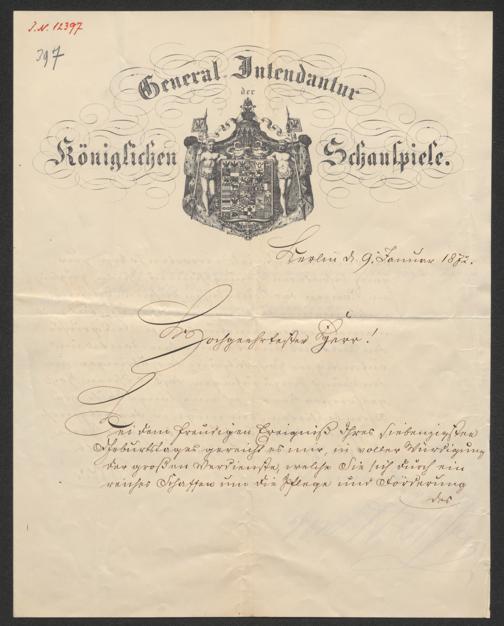 J.N. 12397
397
General-Intendantur
der
Königlichen Schauspiele.
Berlin d. 9. Januar 1872.
Hochgeehrtester Herr!
Bei dem freudigen Ereigniß Ihres siebenzigsten
Geburtstages gereicht es mir, in voller Würdigung
der großen Verdienste, welche Sie sich durch ein
reiches Schaffen um die Pflege und Förderung
des